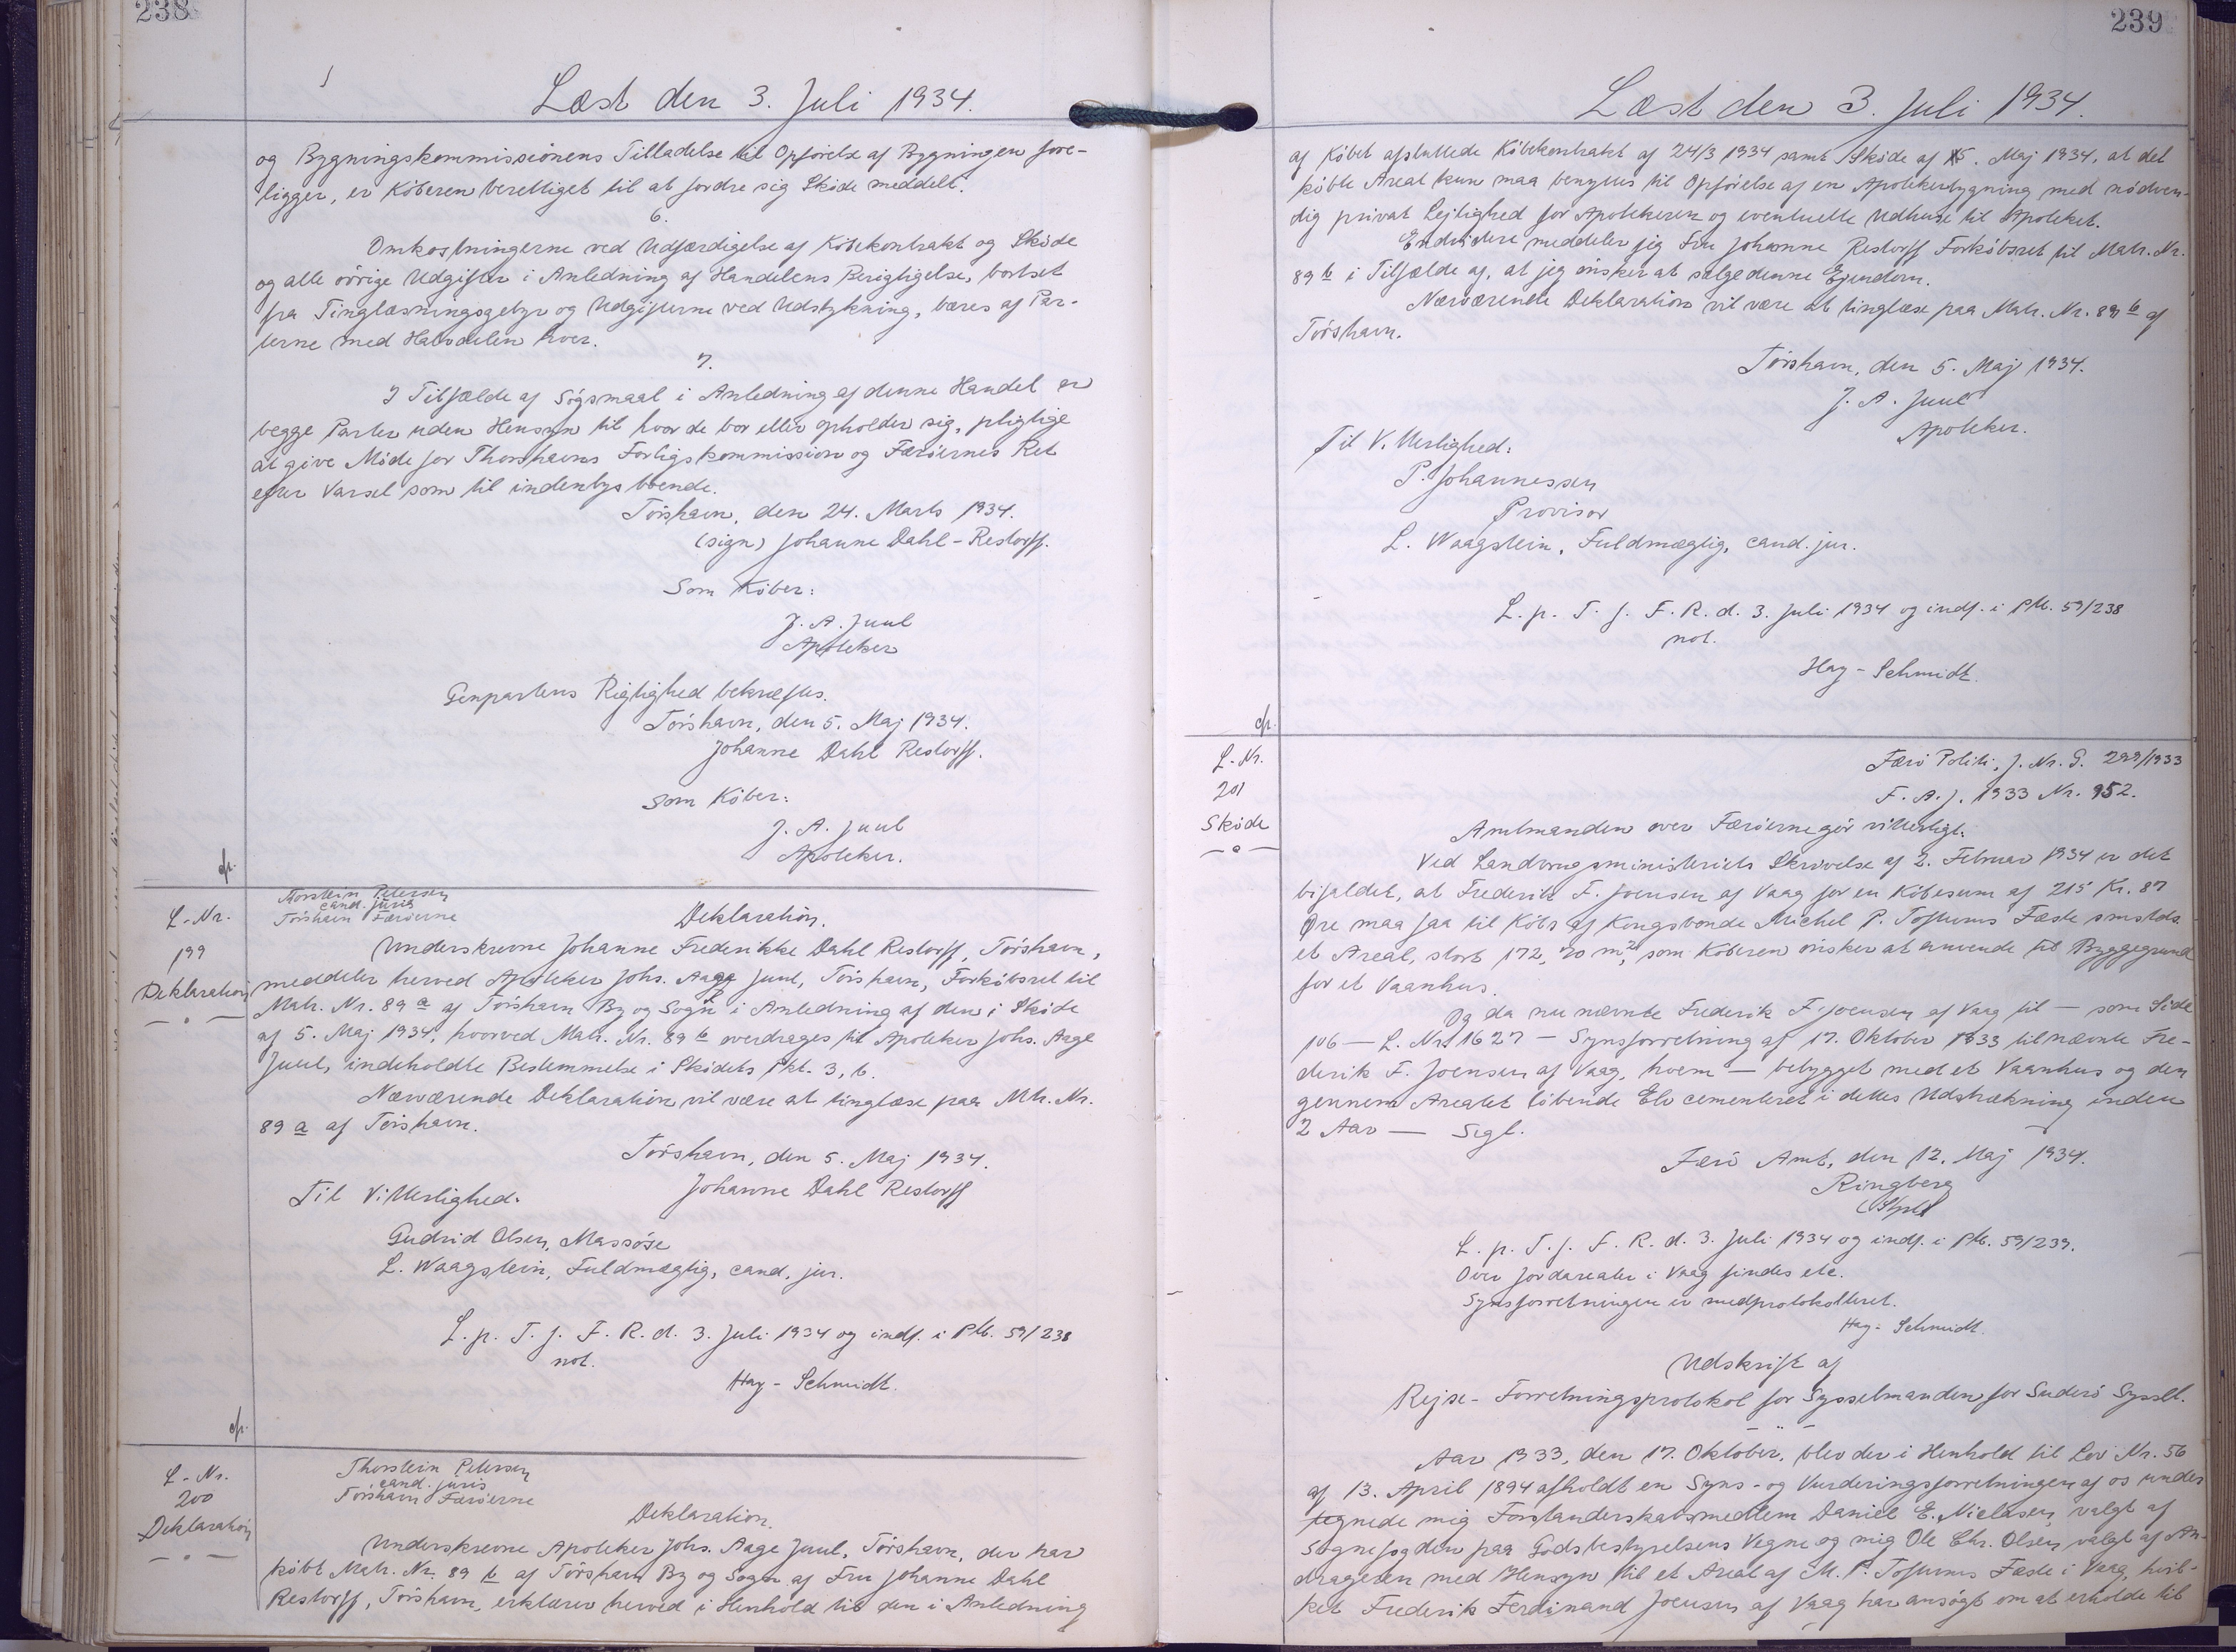 238
Læst den 3. Juli 1934.
og Bygningskommissionens Tilladelse til Opførelse af Bygningen fore-
ligger, er Køberen berettiget til at fordre sig Skøde meddelt.
6.
Omkostningerne ved Udfærdigelse af Købekontrakt og Skøde
og alle øvrige Udgifter i Anledning af Handelens Berigtigelse, bortset
fra Tinglæsningsgebyr og Udgifterne ved Udstykning, bæres af Par-
terne med Halvdelen hver.
7.
I Tilfælde af Søgsmaal i Anledning af denne Handel er
begge Parter uden Hensyn til hvor de bor eller opholder sig, pligtige
at give Møde for Thorshavns Forligskommission og Færøernes Ret
efter Varsel som til indenbys boende.
Tórshavn, den 24. Marts 1934.
(sign) Johanne Dahl-Restorff.
Som Køber:
J. A. Juul
Apoteker
Genpartens Rigtighed bekræftes.
Tórshavn, den 5. Maj 1934.
Johanne Dahl Restorff.
Som Køber:
J. A. Juul
Apoteker.
cfr.
L-Nr.
199
Deklaration
Thorstein Petersen
cand. juris
Tórshavn Færøerne
Deklaration.
Underskrevne Johanne Frederikke Dahl Restorff, Tórshavn,
meddeler herved Apoteker Johs. Aage Juul, Tórshavn, Forkøbsret til
Matr. Nr. 89 a af Tórshavn By og Sogn i Anledning af den i Skøde
af 5. Maj 1934, hvorved Matr. Nr. 89 b overdrages til Apoteker Johs. Aage
Juul, indeholdte Bestemmelse i Skødets Pkt. 3, b.
Nærværende Deklaration vil være at tinglæse paa Mtr. Nr.
89 a af Tórshavn.
Tórshavn, den 5. Maj 1934.
Johanne Dahl Restorff
Til Vitterlighed:
Gudrid Olsen, Massøse
L. Waagstein, Fuldmægtig, cand. jur.
L. p. T. f. F. R. d. 3. Juli 1934 og indf. i Ptk. 59/238
not.
Hay-Schmidt.
cfr.
L-Nr.
200
Deklaration
Thorstein Petersen
cand. juris
Tórshavn Færøerne
Deklaration.
Underskrevne Apoteker Johs. Aage Juul, Tórshavn, der har
købt Matr. Nr. 89 b af Tórshavn By og Sogn af Fru Johanne Dahl
Restorff, Tórshavn, erklærer herved i Henhold til den i Anledning
239
Læst den 3. Juli 1934.
af Købet afsluttede Købekontrakt af 24/3 1934 samt Skøde af 5. Maj 1934, at det
købte Areal kun maa benyttes til Opførelse af en Apotekerbygning med nødven-
dig privat Lejlighed for Apotekeren og eventuelle Udhuse til Apoteket.
Endvidere meddeler jeg Fru Johanne Restorff Forkøbsret til Matr. Nr.
89 b i Tilfælde af, at jeg ønsker at sælge denne Ejendom.
Nærværende Deklaration vil være at tinglæse paa Matr. Nr. 89 b af
Tórshavn.
Tórshavn, den 5. Maj 1934.
J. A. Juul
Apoteker.
Til Vitterlighed:
P. Johannessen
Provisor
L. Waagstein, Fuldmægtig, cand. jur.
L. p. T. f. F. R. d. 3. Juli 1934 og indf. i Ptk. 59/238
not.
Hay-Schmidt.
cfr.
L-Nr.
201
Skøde
Færø Politi, J. Nr. G. 299/1933
F. A. J. 1933 Nr. 952.
Amtmanden over Færøerne gør vitterligt:
Ved Landbrugsministeriets Skrivelse af 2. Februar 1934 er det
bifaldet, at Frederik F. Joensen af Vaag for en Købesum af 215 Kr. 87
Øre maa faa til Købs af Kongsbonde Michel P. Toftums Fæste smstds.
et Areal, stort 172,70 m², som Køberen ønsker at anvende til Byggegrund
for et Vaanhus.
Og da nu nævnte Frederik F. Joensen af Vaag til — som Side
106 — L. Nr. 1627 — Synsforretning af 17. Oktober 1933 tilnævnte Fre-
derik F. Joensen af Vaag, hvem — bebygget med et Vaanhus og den
gennem Arealet løbende Elv cementeret i dettes Udstrækning inden
2 Aar — Segl.
Færø Amt, den 12. Maj 1934.
Ringberg
L. p. T. f. F. R. d. 3. Juli 1934 og indf. i Ptk. 59/239.
Over Jordarealer i Vaag findes etc.
Synsforretningen er medprotokolleret.
Hay-Schmidt.
Udskrift af
Rejse-Forretningsprotokol for Sysselmanden for Suderø Syssel.
Aar 1933, den 17. Oktober, blev der i Henhold til Lov Nr. 56
af 13. April 1894 afholdt en Syns- og Vurderingsforretningen af os under
tegnede mig Forstanderskabsmedlem Daniel E. Niclasen, valgt af
Sognefogden paa Godsbestyrelsens Vegne og mig Ole Chr. Olsen, valgt af An-
drageren med Hensyn til et Areal af M. P. Toftums Fæste i Vaag, hvil-
ket Frederik Ferdinand Joensen af Vaag har ansøgt om at erholde til